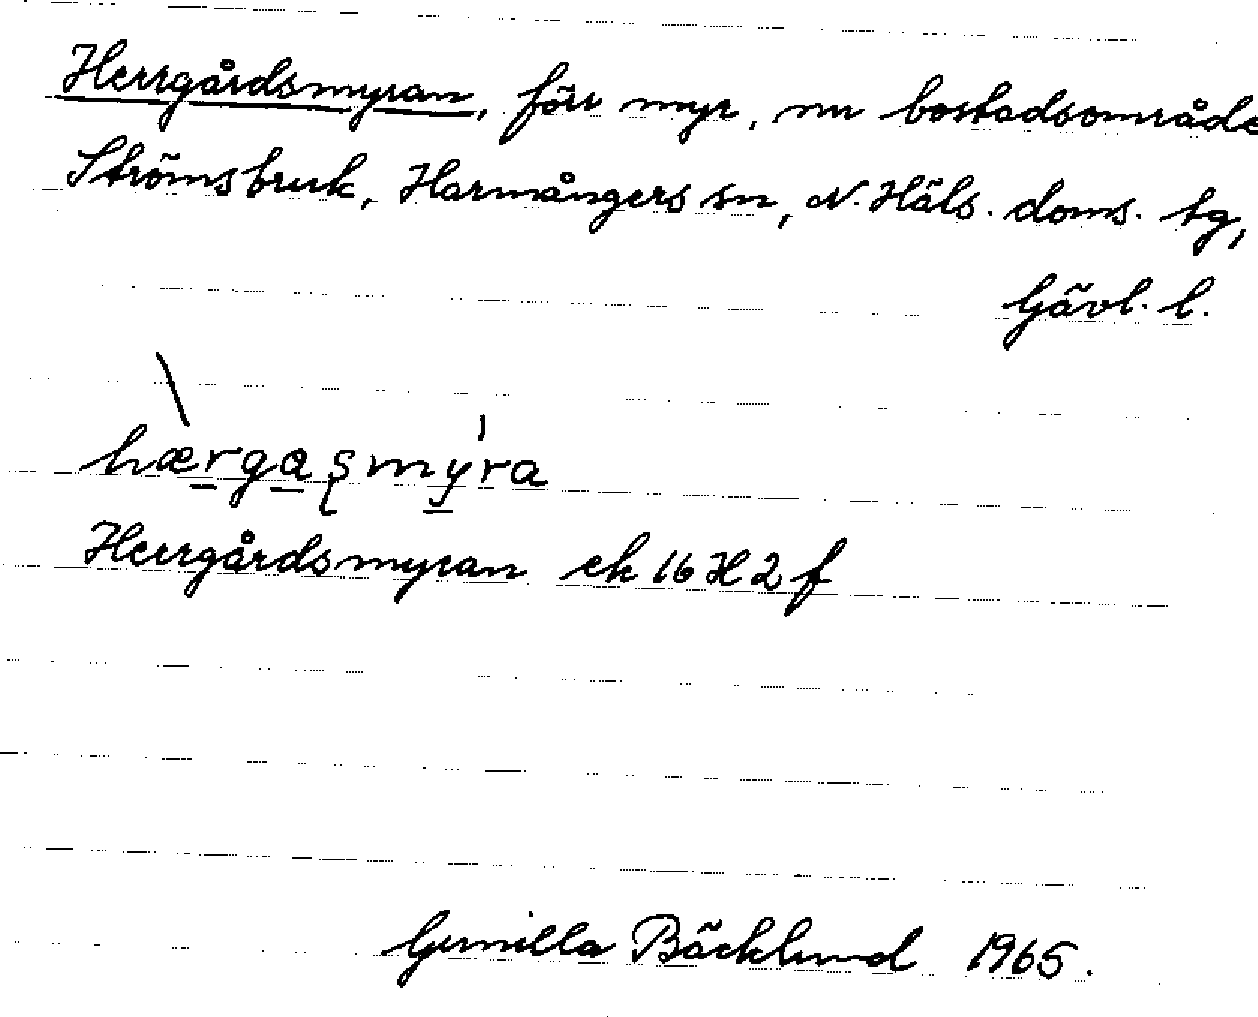 Herrgårdsmyran, förr myr, nu bostadsområde
Strömsbruk, Harmångers sn, N. Häls. doms. tg,
Gävl. l.
hærgaʂmyra
Herrgårdsmyran ek 16 H 2 f
Gunilla Bäcklund 1965.